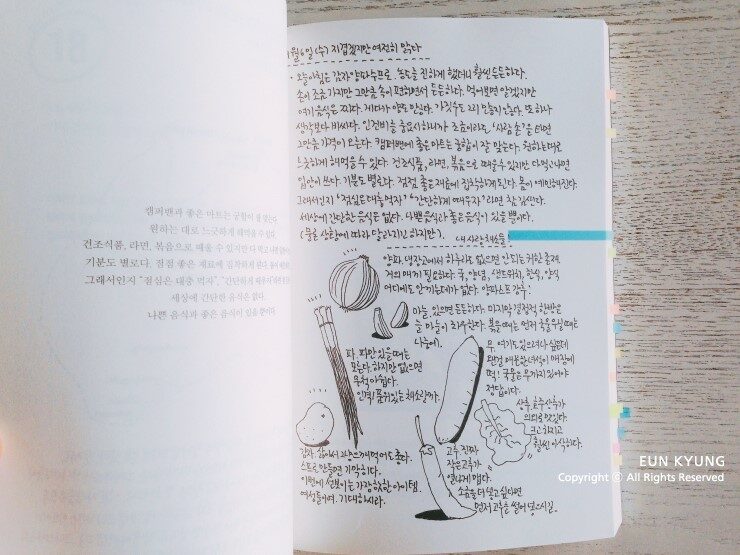 캠퍼밴과 좋은 마트는 궁합이 잘 맞는다.
원하는 대로 느긋하게 해먹을 수 있다.
건조식품, 라면, 볶음으로 때울 수 있지만 다 먹고 나면
기분도 별로다. 점점 좋은 재료에 집착하게 된다. 몸이
그래서인지 "점심은 대충 먹자", "간단하게 때우자"
세상에 간단한 음식은 없다.
나쁜 음식과 좋은 음식이 있을 뿐이다.
1월 6일 (수) 지겹겠지만 여전히 맑다
· 오늘 아침은 감자양파수프로. 농도를 진하게 했더니 훨씬 든든하다.
손이 조금 가지만 그만큼 속이 편하면서 든든하다. 먹어보면 알겠지만
여기 음식은 짜다. 게다가 양도 많다. 가짓수도 많지 않다. 또 하나
생각보다 비싸다. 인건비를 중요시하니까 조금이라도, '사람 손'을 타면
그만큼 가격이 오른다. 캠퍼밴에 좋은 마트는 궁합이 잘 맞는다. 원하는대로
느긋하게 해먹을 수 있다. 건조식품, 라면, 볶음으로 때울 수 있지만 다 먹고나면
입안이 쓰다. 기분도 별로다. 점점 좋은 재료에 집착하게 된다. 몸이 예민해진다.
그래서인지 '점심은 대충 먹자' "간단하게 때우자"라면 참 쉽싼다.
세상에 간단한 음식은 없다. 나쁜음식과 좋은음식이 있을 뿐이다.
(물론 상황에 따라 달라지긴 하지만).
내 사랑 채소들!
양파. 냉장고에서 하루라도 없으면 안되는 귀한 존재.
거의 매끼 필요하다. 국, 양념, 샌드위치, 한식, 양식
어디에도 안 끼는데가 없다. 양파스프 강추!
마늘. 있으면 든든하다. 마지막 결정적 한방은
늘 마늘이 좌우한다. 볶을때는 먼저 국물요리일때는
나중에.
파. 파만 있을때는
모른다. 하지만 없으면
무척 아쉽다.
인격/품위있는 채소랄까.
무. 여기도 있으려나 싶은데
떡! 국물은 무까지 있어야
정답이다.
상추. 호주 상추가
의외로 맛있다.
크고 하지고
훨씬 아삭하다.
감자. 삶아서 소금으깨먹어도 좋다.
스프로 만들면 기막히다.
이번에 선보이는 가장 핫한 아이템.
여성들이여. 기대하시라.
고추. 진짜
작은고추가
엄나게 맵다.
소금을 더 넣고 싶다면
먼저 고추를 썰어 넣으시길.
EUN KYUNG
Copyright ⓒ All Rights Reserved